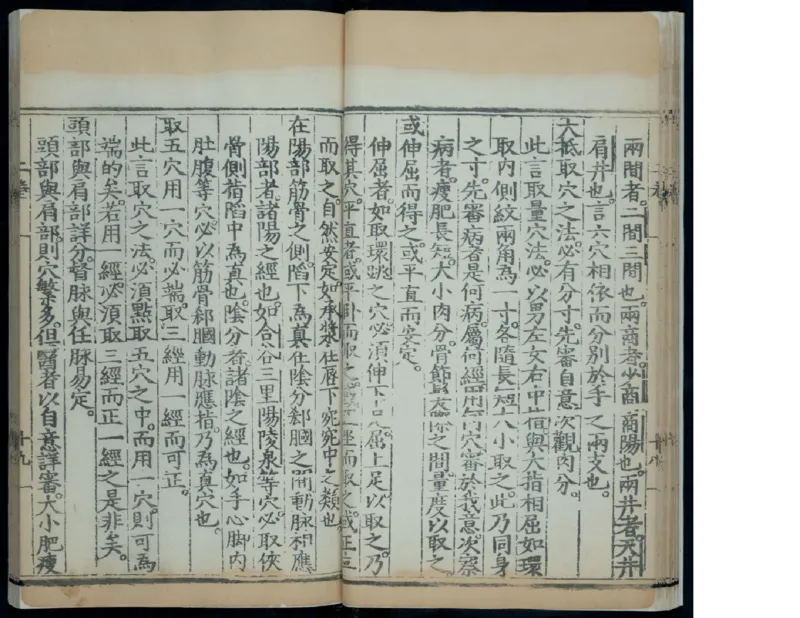 兩間者。二間三間也。兩商者。少商商陽也。兩井者。天井
肩井也。言六穴相依而分別於手之兩支也。
大抵取穴之法。必有分寸。先審自意。次觀肉分。
此言取量穴法。必以男左女右。中指與大指相屈如環
取內側紋兩角為一寸。各隨長短大小取之。此乃同身
之寸。先審病者是何病。屬何經。用何穴。審於我意。次察
病者。瘦肥長短。大小肉分。骨節之間。量度以取之
或伸屈而得之。或平直而安定。
伸屈者。如取環跳之穴。必須伸下足屈上足以取之。乃
得其穴。平直者。或平卧而取之。坐而取之。或正立
而取之。自然安定。如承漿在唇下宛宛中之類也
在陽部筋骨之側。陷下為真。在陰分郄膕之間。動脉相應
陽部者。諸陽之經也。如合谷三里陽陵泉等穴。必取俠
骨側指陷中為真也。陰分者。諸陰之經也。如手心脚內
肚腹等穴。必以筋骨郄膕動脉應指。乃為真穴也。
取五穴用一穴而必端。取三經用一經而可正。
此言取穴之法。必須點取五穴之中。而用一穴。則可為
端的矣。若用一經。必須取三經而正一經之是非矣。
頭部與肩部詳分。督脉與任脉易定。
頭部與肩部。則穴繁多。但醫者以自意詳審。大小肥瘦
二卷
十九